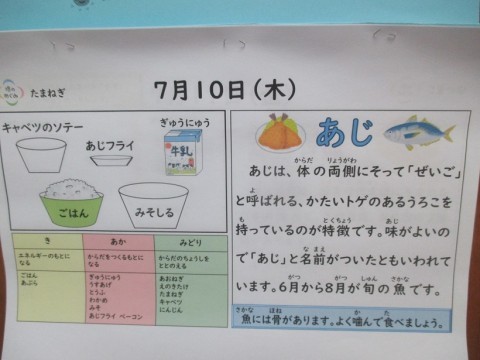 たまねぎ
7月10日(木)
キャベツのソテー
あじフライ
ぎゅうにゅう
牛乳
ごはん
みそしる
き
あか
みどり
エネルギーのもとに
なる
からだをつくるもとに
なる
からだのちょうしを
ととのえる
ごはん
あぶら
ぎゅうにゅう
うすあげ
とうふ
わかめ
みそ
あじフライ ベーコン
あおねぎ
えのきたけ
たまねぎ
キャベツ
にんじん
あじ
あじは、体の両側にそって「ぜいご」
と呼ばれる、かたいトゲのあるうろこを
持っているのが特徴です。味がよいの
で「あじ」と名前がついたともいわれて
います。6月から8月が旬の魚です。
魚には骨があります。よく噛んで食べましょう。